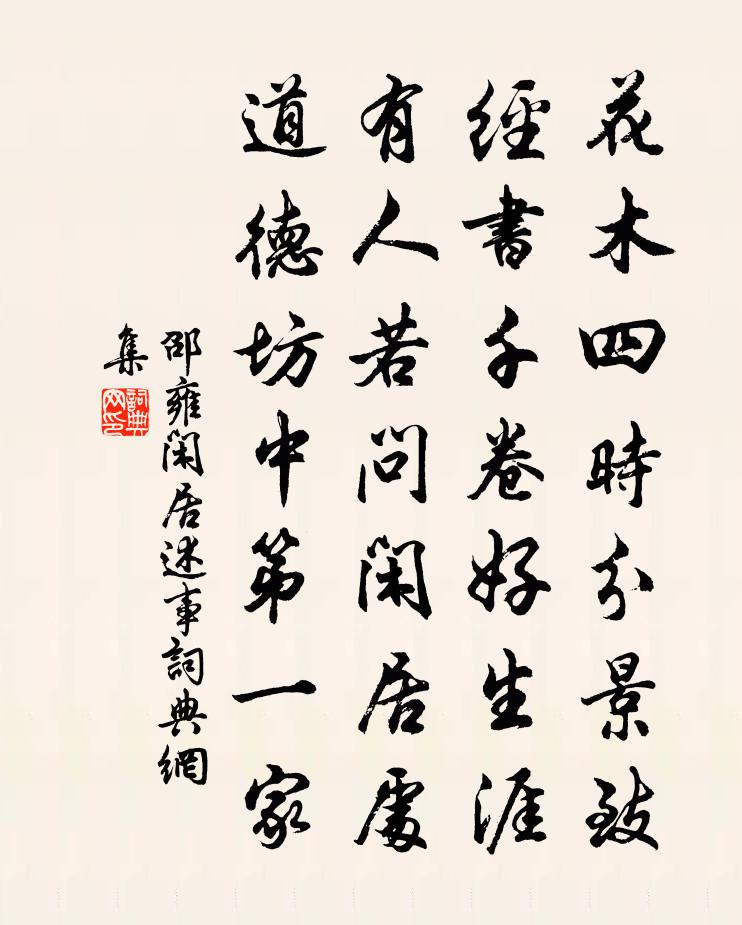 花木四時分景致
經書千卷好生涯
有人若問閑居處
道德坊中第一家
邵雍閑居述事詞典網
集
詞典
网印